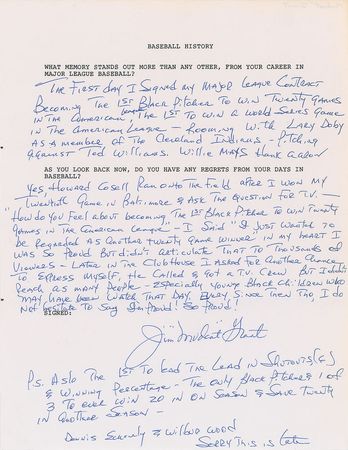 BASEBALL HISTORY
WHAT MEMORY STANDS OUT MORE THAN ANY OTHER, FROM YOUR CAREER IN
MAJOR LEAGUE BASEBALL?
The First day I Signed my Major League Contract
Becoming The 1st Black Pitcher To Win Twenty Games
in The American League, The 1st To Win a World Series Game
in The American League — Rooming With Lary Doby
as a member of The Cleveland Indians — Pitching
against Ted Williams. Willie Mays Hank Aaron
AS YOU LOOK BACK NOW, DO YOU HAVE ANY REGRETS FROM YOUR DAYS IN
BASEBALL?
Yes Howard Cosell Ran onto The field after I won my
Twentieth Game in Baltimore & Ask The Question for T.V. —
"How do you Feel about becoming The 1st Black Pitcher To Win Twenty
Games in The American League — I Said "I Just wanted To
be Regarded as Another Twenty Game Winner in my heart I
was So Proud But didn't articulate That To Thousands of
Viewers — Later in The Clubhouse I asked for Another Chance
To Express myself, He Called & Got a T.V. Crew But I didn't
Reach as many People — Especially young Black Children who
may have been Watch That day. Every Since Then Tho, I do
not hesitate To Say I'm Proud! So Proud!
SIGNED:
Jim "Mudcat" Grant
P.S. Also The 1st To Lead The Lead in Shutouts (6)
& Winning Percentage — The only Black Pitcher & 1 of
3 To Ever Win 20 in on Season & Save Twenty
in Another Season —
Dennis Eckersly & Wilbur Wood
Sorry This is Late